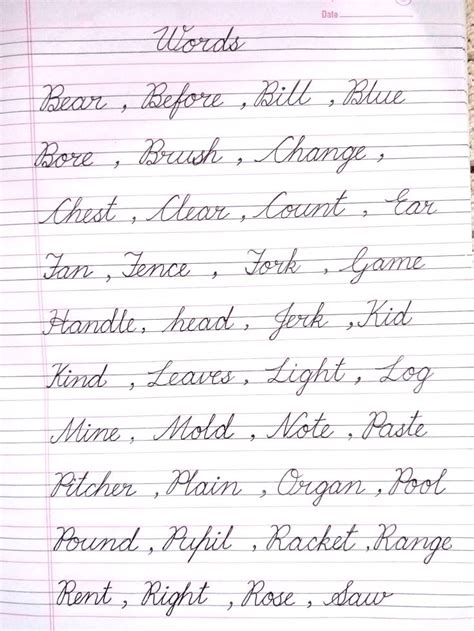 Date
Words
Bear , Before , Bill , Blue
Bore , Brush , Change ,
Chest , Clear , Count , Ear
Fan , Fence , Fork , Game
Handle, head , Jerk , Kid
Kind , Leaves , Light , Log
Mine , Mold , Note , Paste
Pitcher , Plain , Organ , Pool
Pound , Pupil , Racket , Range
Rent , Right , Rose , Saw